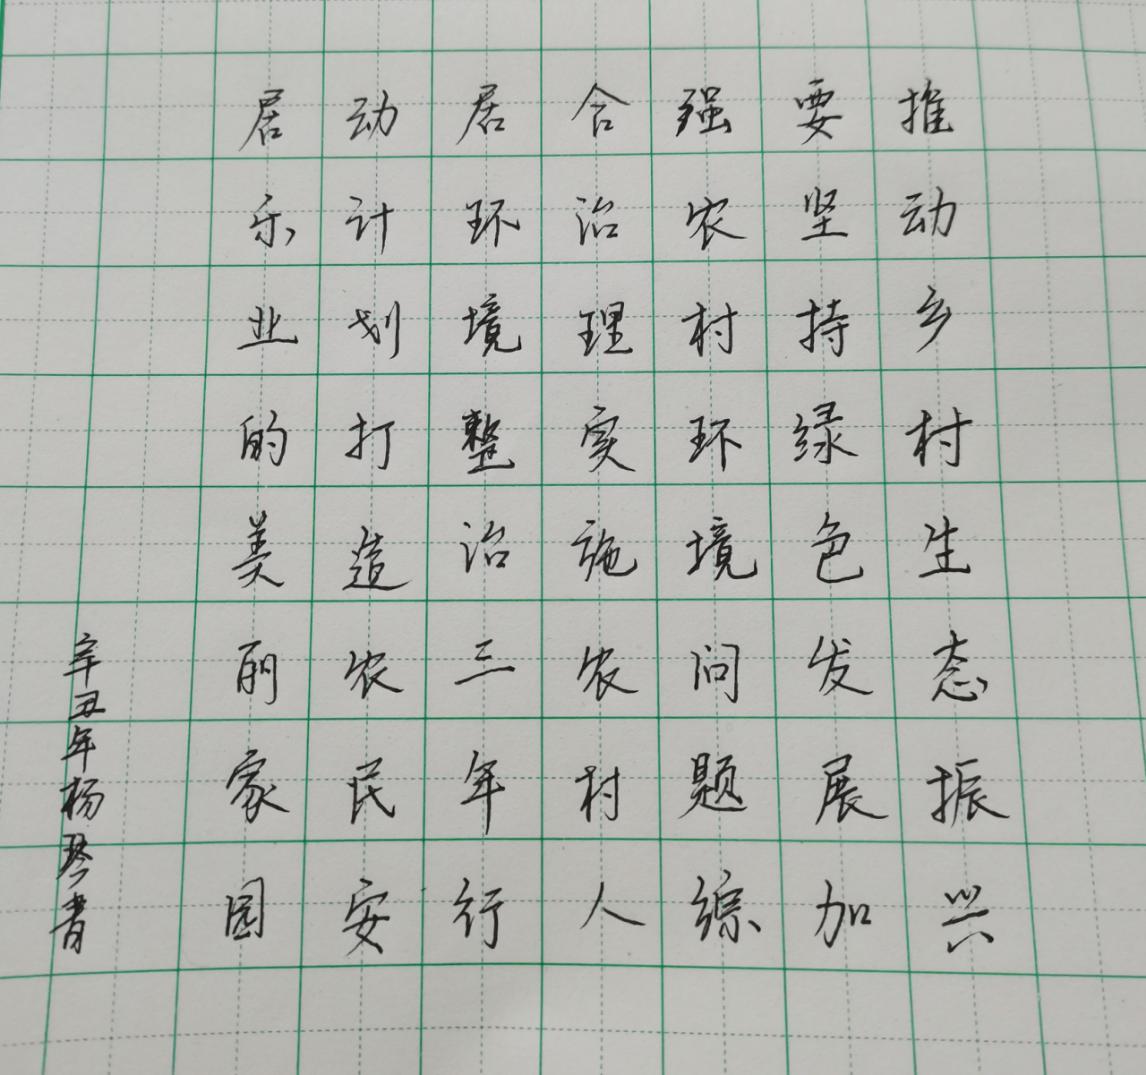 推动乡村生态振兴
要坚持绿色发展加
强农村环境问题综
合治理实施农村人
居环境整治三年行
动计划打造农民安
居乐业的美丽家园
辛丑年杨琴书